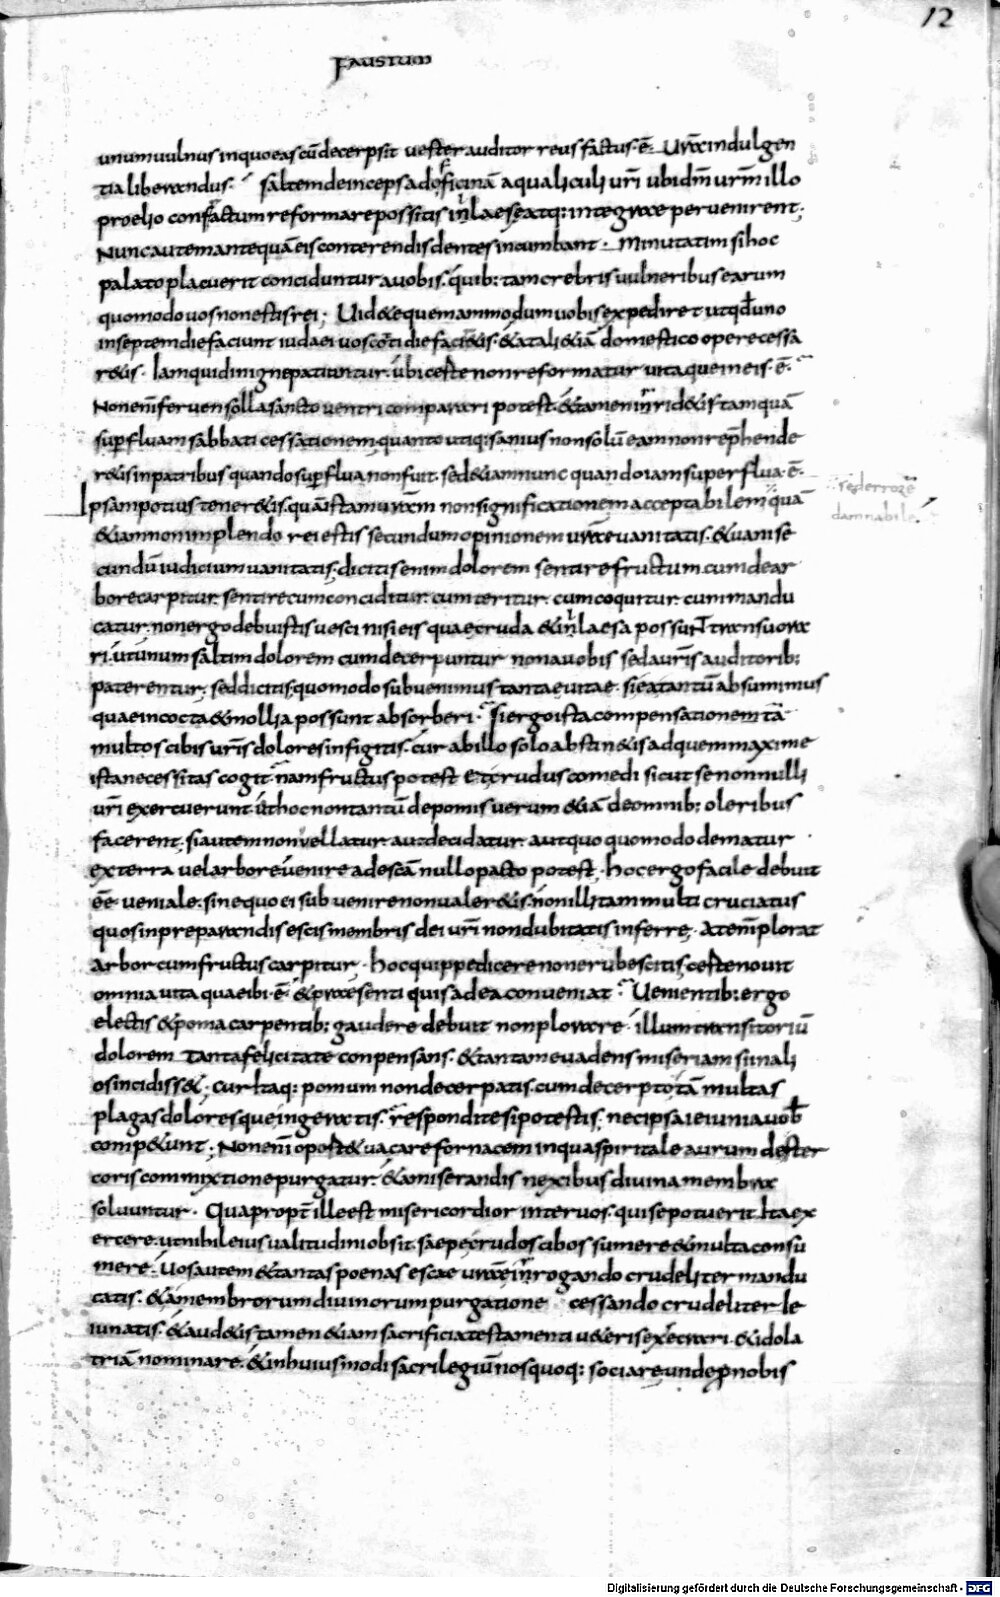 12
FAUSTUM
unum uulnus in quo eas cū decerpsit uester auditor reus factus ē. Ur̄a indulgen
tia liberandus. saltem deinceps ad officinā aqualiculi ur̄i ubi dm̄ ur̄m illo
proelio confractum reformare possitis inlaese atq: integrae peruenirent.
Nunc autem antequā eis conterendis dentes incumbant. minutatim si hoc
palato placuerit conciduntur a uobis. quib: tam crebris uulneribus earum
quomodo uos non estis rei; Uid&e quemammodum uobis expediret ut qd̄ uno
in septem die faciunt iudaei uos cottidie faci&is. & a tali &iā domestico opere cessa
r&is. Iam quid inigne patiuntur. ubi certe non reformatur uita que in eis. ē.
Non enī feruens olla sancto uentri comparari potest. & tamen inrid&is tamquā
sup̄fluam sabbati cessationem. quanto utiq: sanius non solū eam non rep̄hende
r&is in patribus quando sup̄flua non fuit. sed &iam nunc quando iam superflua. ē.
Ipsam potius tener&is. quā istam ur̄am non significatione acceptabilem quā
& iam non implendo rei estis secundum opinionem ur̄ae uanitatis. & uani se
cundū iudicium uanitatis. dicitis enim dolorem sentire fructum. cum de ar
bore carpitur. sentire cum conciditur. cum teritur. cum coquitur. cum mandu
catur. non ergo debuistis uesci nisi eis quae cruda & inlaesa possunt transuora
ri. ut unum saltim dolorem cum decerpuntur non a uobis sed a ur̄is auditorib:
paterentur. sed dicitis. quomodo subuenimus tantae uitae. si ea tantū absumimus
quae incocta & mollia possunt absorberi. si ergo ista compensatione tā
multos cibis ur̄is dolores infigitis. cur ab illo solo abstin&is ad quem maxime
ista necessitas cogit. nam fructus potest et crudus comedi sicut se nonnulli
ur̄i exercuerunt ut hoc non tantū de pomis uerum &iā de omnib: oleribus
facerent. si autem non uellatur. aut decidatur. aut quo quomodo dematur
ex terra uel arbore uenire ad escā nullo pacto potest. hoc ergo facile debuit
ēē ueniale. sine quo ei subuenire non ualer&is. non illi tam multi cruciatus
quos in praeparandis escis membris dei ur̄i non dubitatis inferre. At enī plorat
arbor cum fructus carpitur. hoc quippe dicere non erubescitis. certe nouit
omnia uita quae ibi. ē. & praesenti quis ad ea conueniat. Uenientib: ergo
electis & poma carpentib: gaudere debuit non plorare. illum transitoriū
dolorem tanta felicitate conpensans. & tantam euadens miseriam si in ali
os incidiss&. cur itaq: pomum non decerpatis. cum decerpto tā multas
plagas doloresque ingeratis. respondite si potestis. nec ipsa ieiunia uob̄
comp&unt; Non enī oport& uacare fornacem in qua spiritale aurum de ster
coris commixtione purgatur. & a miserandis nexibus diuina membra
soluuntur. Quapropt̄ ille est misericordior inter uos. qui se potuerit ita ex
ercere. ut nihil eius ualitudini obsit. saepe crudos cibos sumere & multa consu
mere. Uos autem & tantas poenas escae ur̄ae inrogando crudeliter mandu
catis. & a membrorum diuinorum purgatione cessando crudeliter ie
iunatis. & aud&is tamen &iam sacrificia testamenti u&eris execrari. & idola
triā nominare. & in huius modi sacrilegiū nos quoq: sociare. unde p̄ nobis
Digitalisierung gefördert durch die Deutsche Forschungsgemeinschaft - DFG